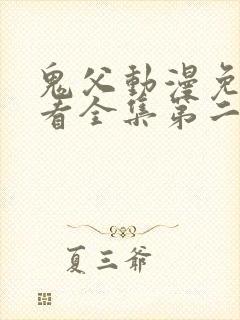 鬼父動漫免
看全集第二
夏三爺